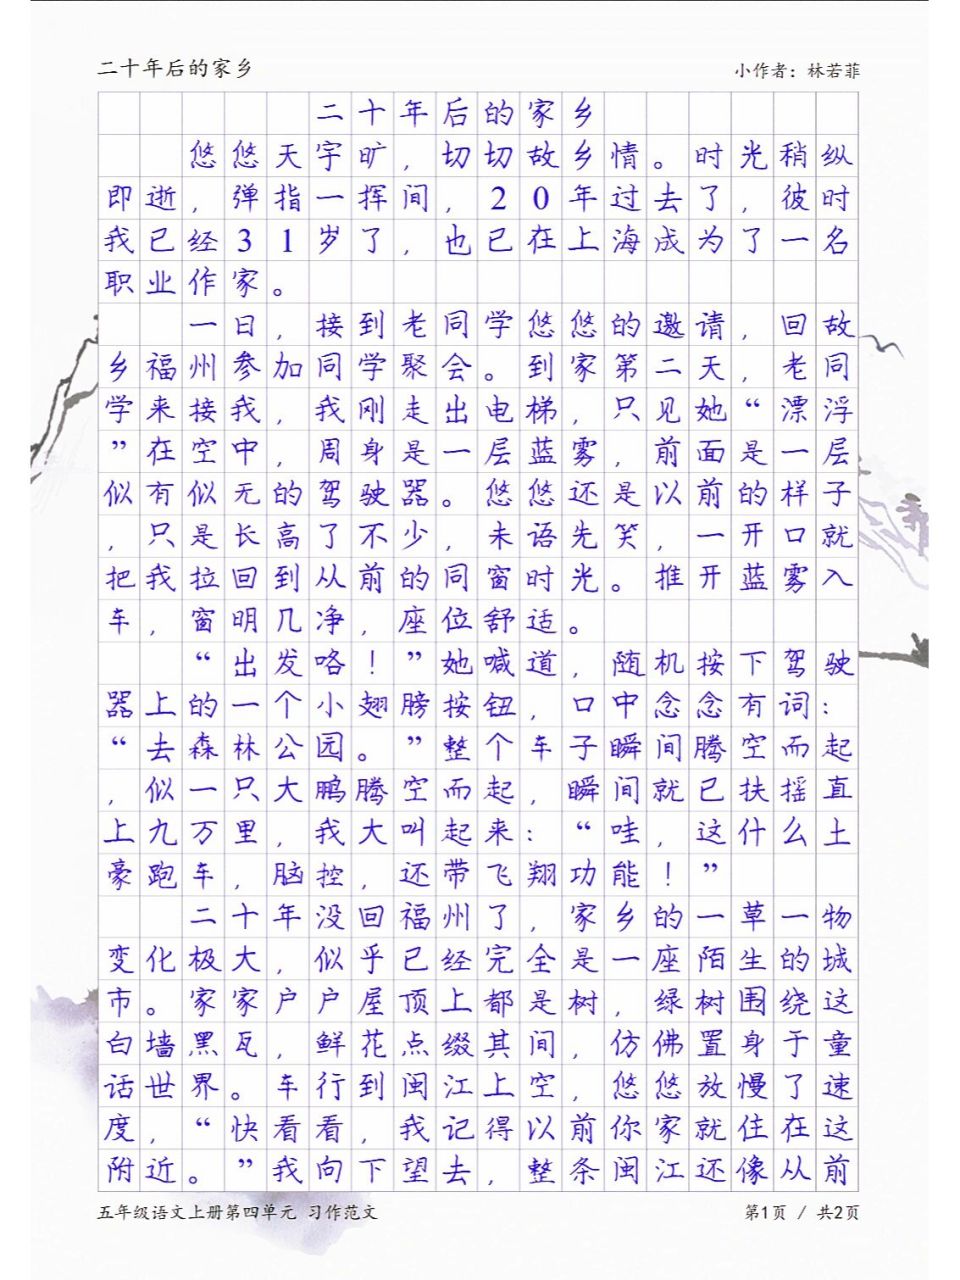 二十年后的家乡
小作者：林若菲
二十年后的家乡
悠悠天宇旷，切切故乡情。时光稍纵
即逝，弹指一挥间，20年过去了，彼时
我已经31岁了，也已在上海成为了一名
职业作家。
一日，接到老同学悠悠的邀请，回故
乡福州参加同学聚会。到家第二天，老同
学来接我，我刚走出电梯，只见她“漂浮
”在空中，周身是一层蓝雾，前面是一层
似有似无的驾驶器。悠悠还是以前的样子
，只是长高了不少，未语先笑，一开口就
把我拉回到从前的同窗时光。推开蓝雾入
车，窗明几净，座位舒适。
“出发咯！”她喊道，随机按下驾驶
器上的一个小翅膀按钮，口中念念有词：
“去森林公园。”整个车子瞬间腾空而起
，似一只大鹏腾空而起，瞬间就已扶摇直
上九万里，我大叫起来：“哇，这什么土
豪跑车，脑控，还带飞翔功能！”
二十年没回福州了，家乡的一草一物
变化极大，似乎已经完全是一座陌生的城
市。家家户户屋顶上都是树，绿树围绕这
白墙黑瓦，鲜花点缀其间，仿佛置身于童
话世界。车行到闽江上空，悠悠放慢了速
度，“快看看，我记得以前你家就住在这
附近。”我向下望去，整条闽江还像从前
五年级语文上册第四单元 习作范文
第1页 / 共2页